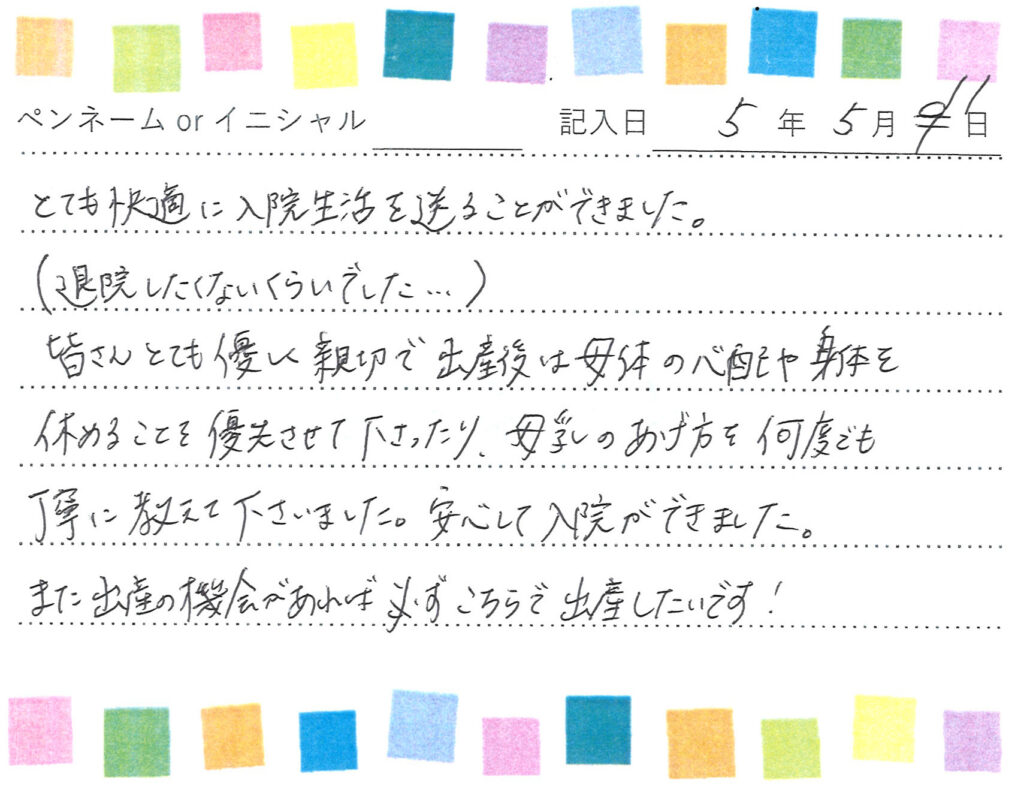 ペンネーム or イニシャル 記入日 5 年 5 月 11 日
とても快適に入院生活を送ることができました。
(退院したくないくらいでした…)
皆さんとても優しく親切で出産後は母体の心配や身体を
休めることを優先させて下さったり、母乳のあげ方を何度でも
丁寧に教えて下さいました。安心して入院ができました。
また出産の機会があれば必ずこちらで出産したいです!